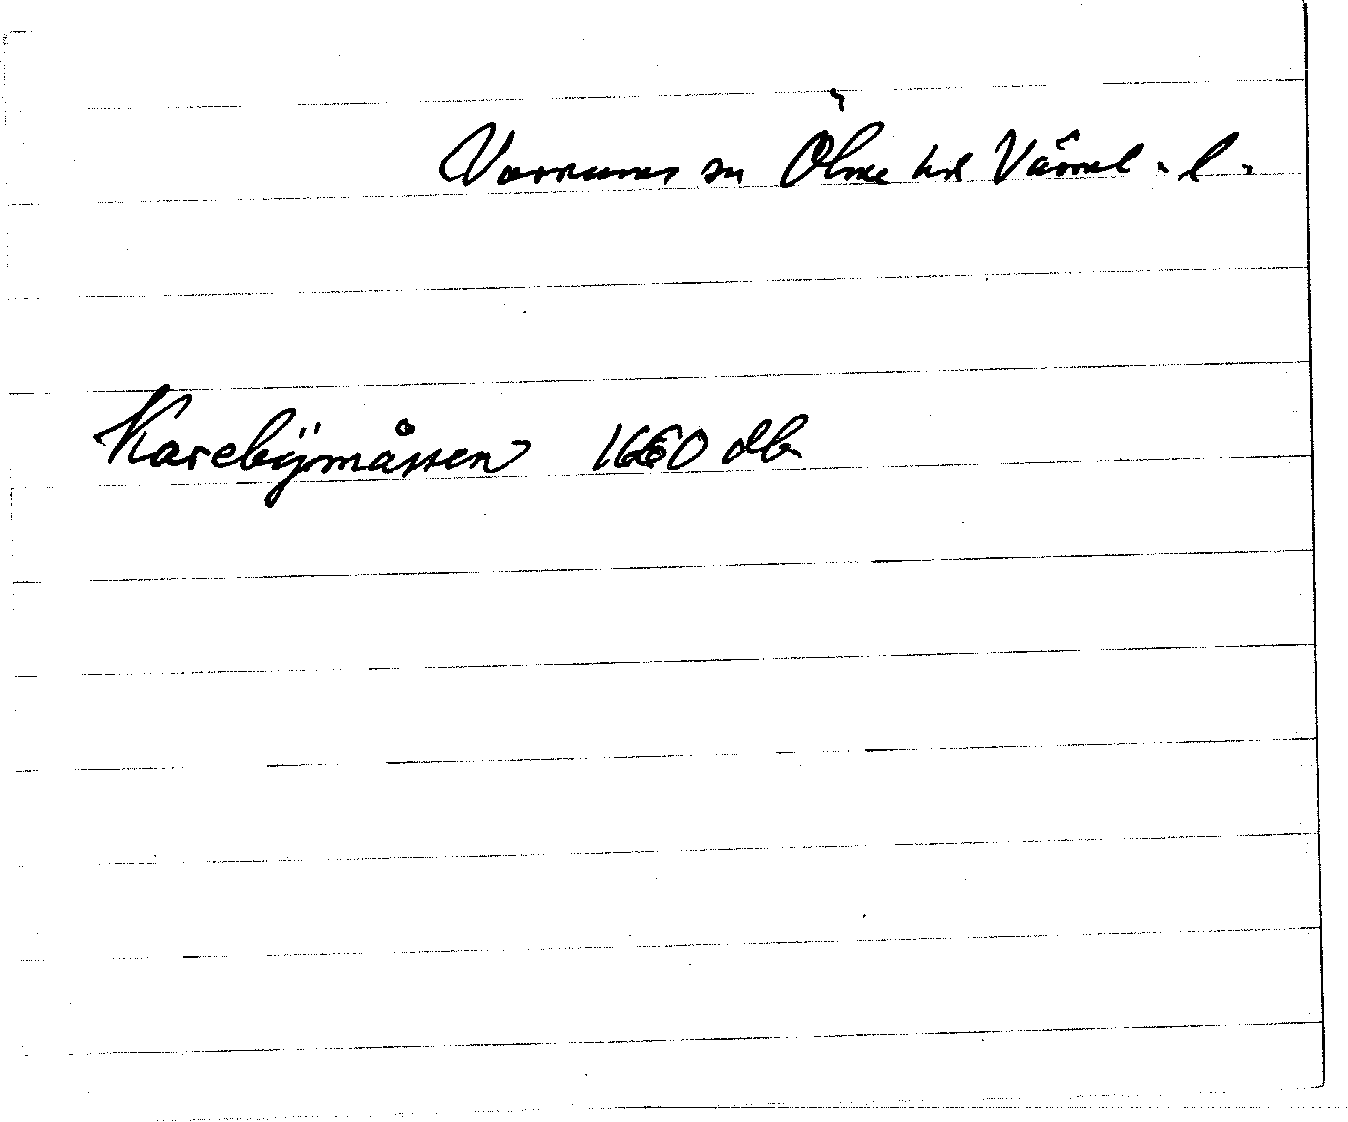 Varnums sn Ölme hd Värml. l.
Karebÿmåssen 1660 db